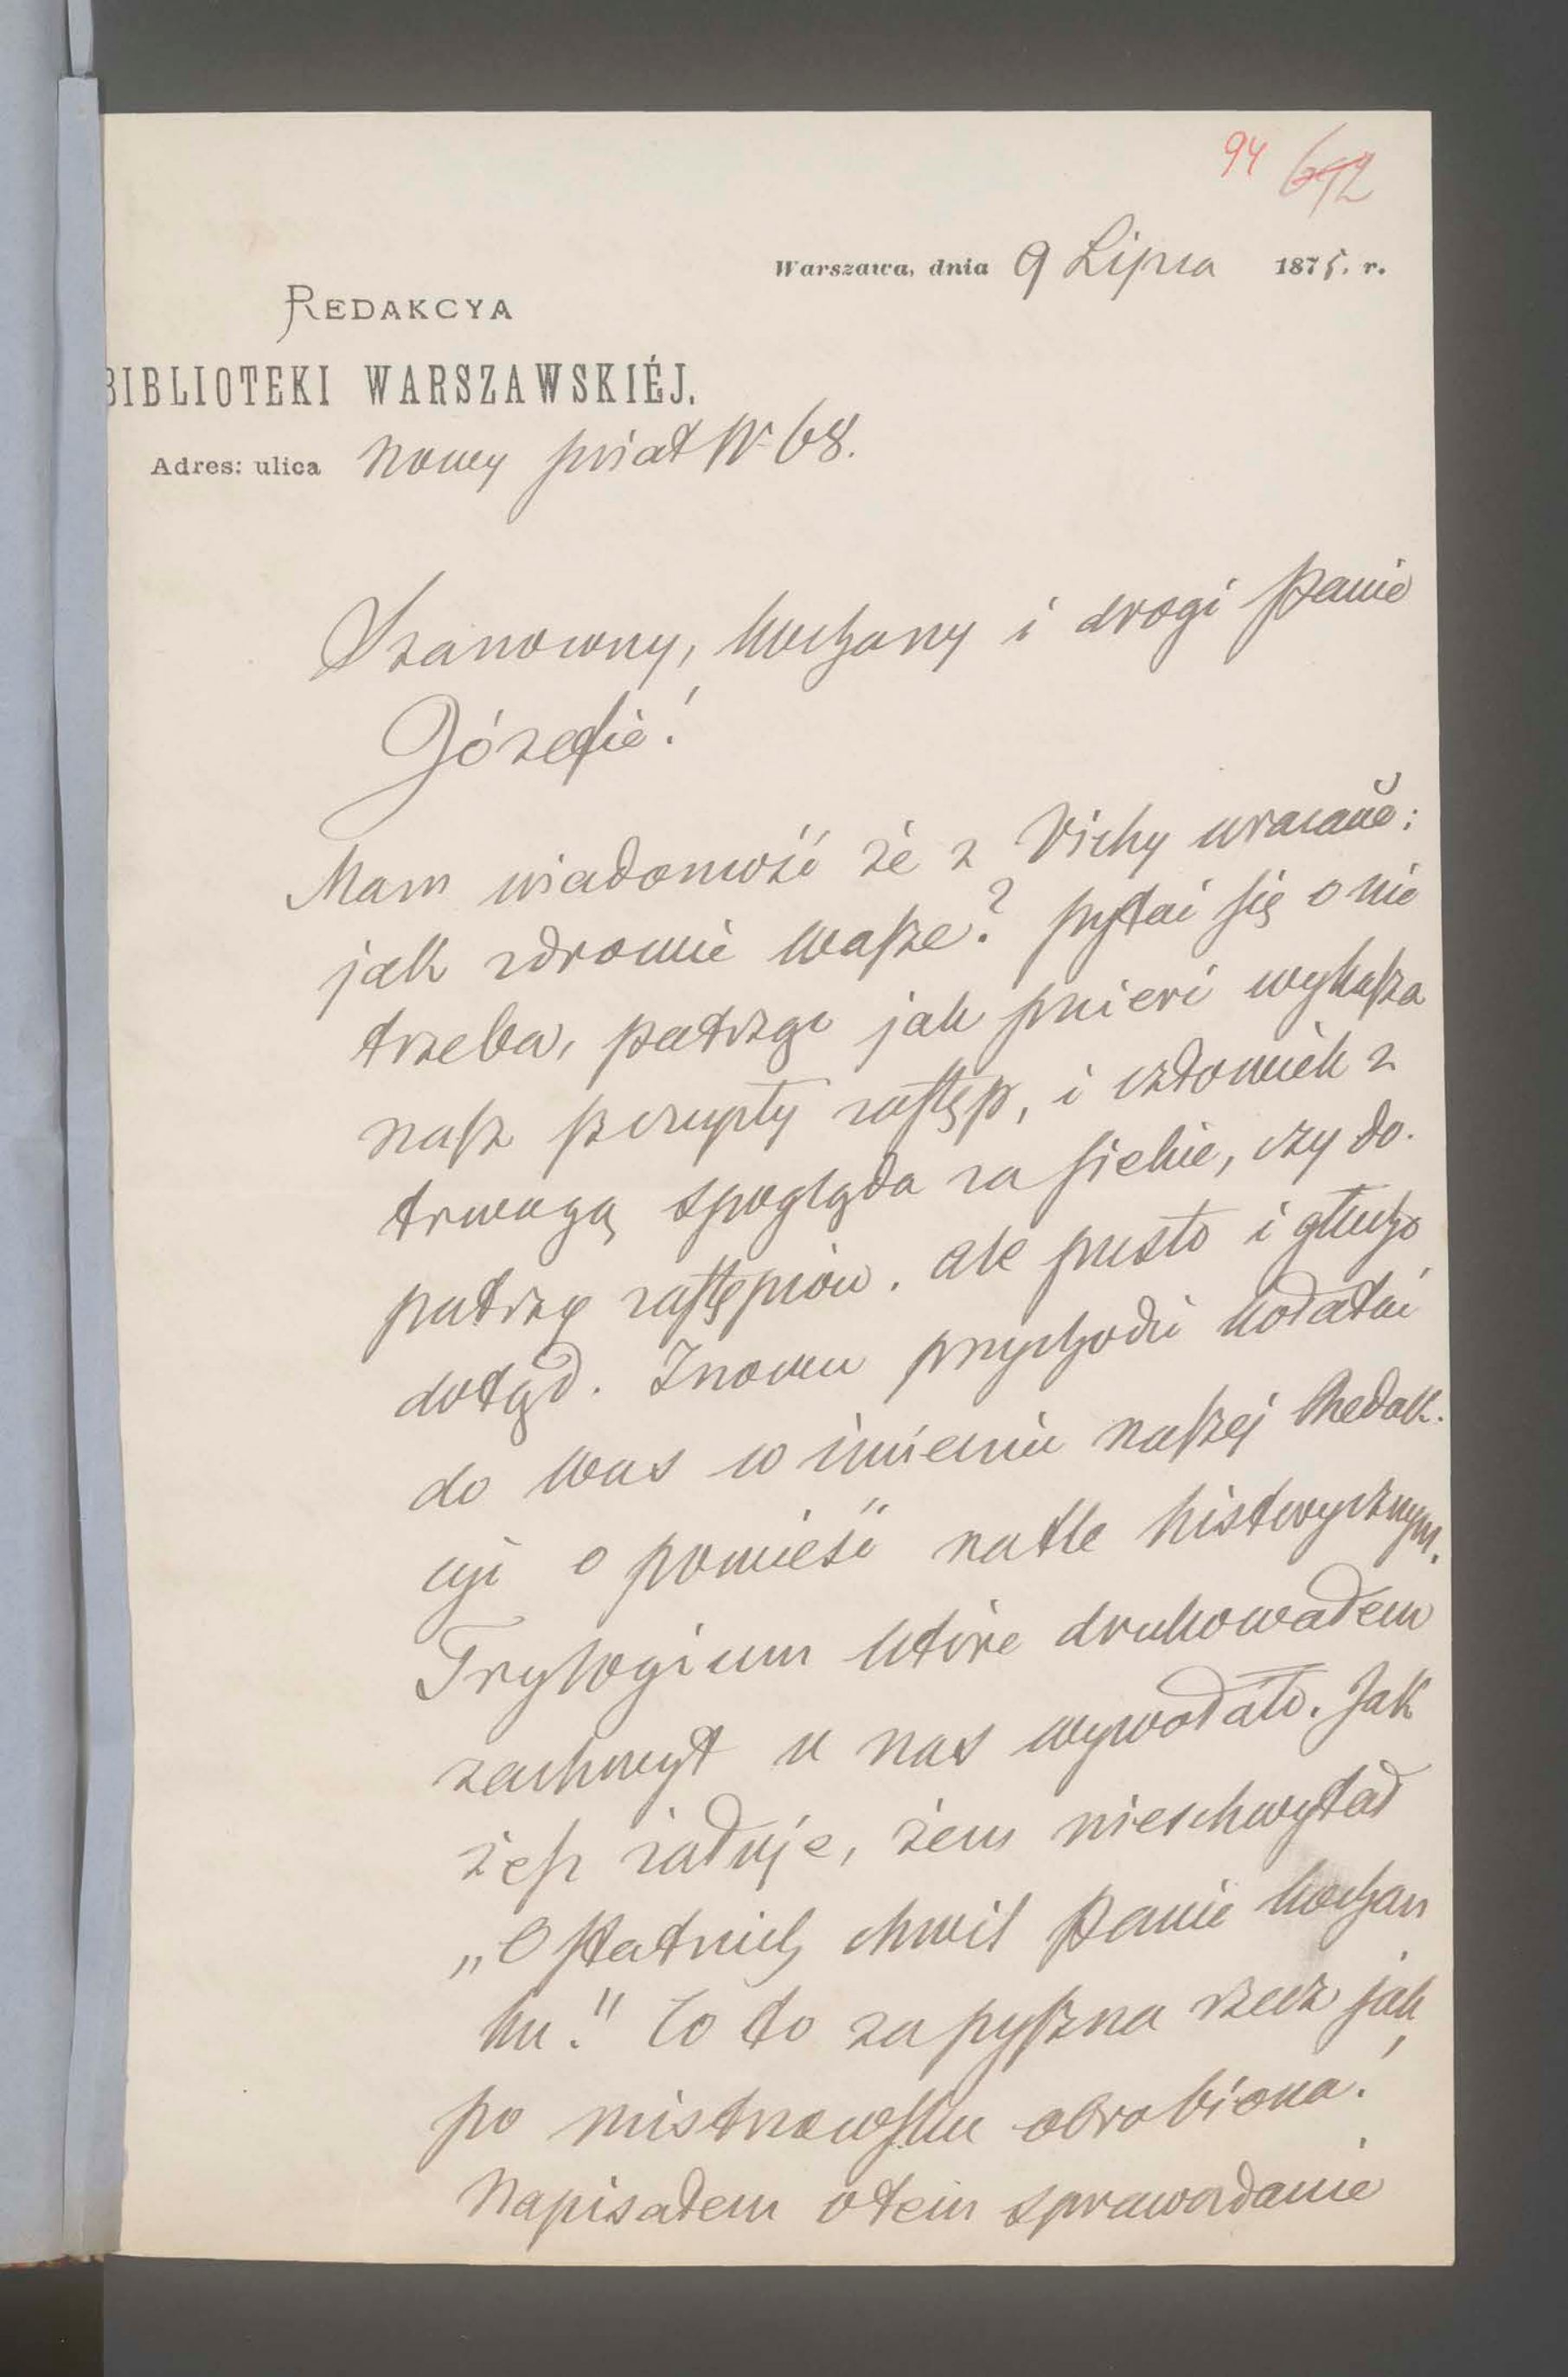 94 692
Warszawa, dnia 9 Lipca 1875. r.
REDAKCYA
BIBLIOTEKI WARSZAWSKIÉJ.
Adres: ulica Nowy świat N 68.
Szanowny, kochany i drogi Panie
Józefie!
Mam wiadomość że z Vichy wracacie:
jak zdrowie wasze? pytać się o nie
trzeba, patrząc jak śmierć wykasza
nasz szczupły zastęp, i człowiek z
trwogą spogląda za siebie, czy do-
patrzy zastępców. ale pusto i głucho
dotąd. Znowu przychodzi kołatać
do was w imieniu naszej Redak-
cyi o powieść na tle historycznym.
Trylogium które drukowałem
zachwyt u nas wywołało. Jak
żesz żałuję, żem nieschwytał
„Ostatnich chwil Panie kochan
ku." Co to za pyszna rzecz jak
po mistrzowsku obrobiona!
Napisałem o tem sprawozdanie